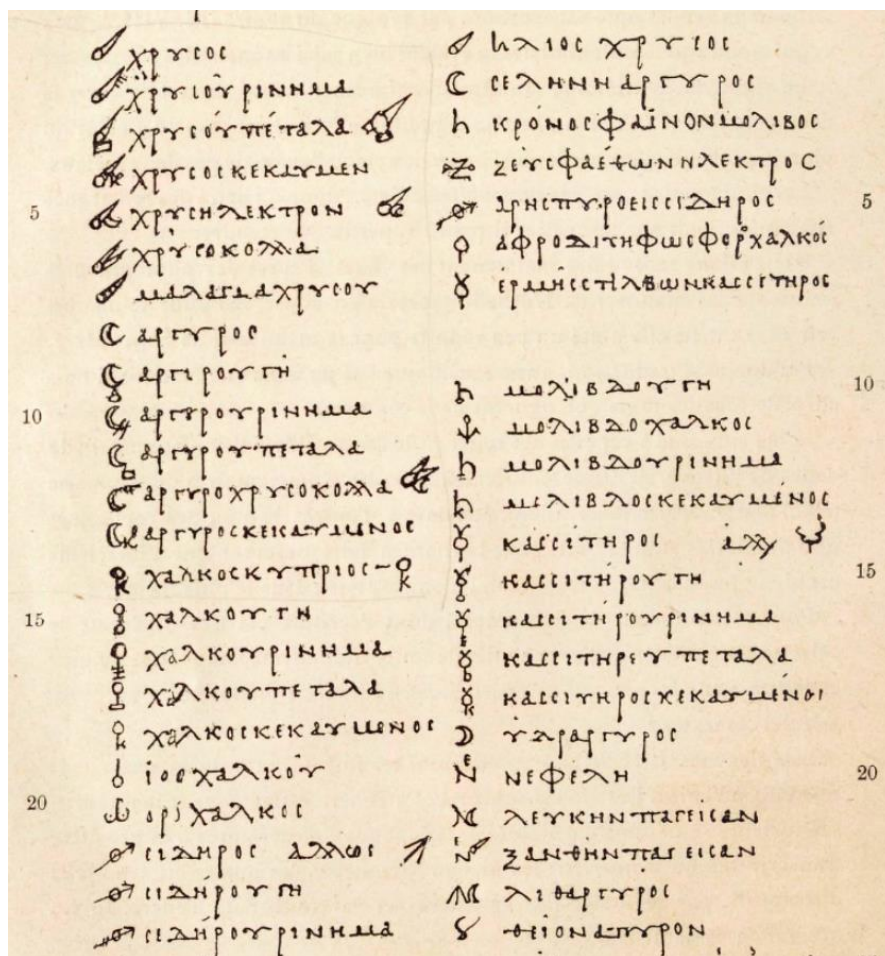 χρυσος
χρυσουρινημα
χρυσούπέταλα
χρυσοσκεκαυμεν
5 χρυσηλεκτρον
χρύσοκολλα
μαλαγμαχρυσου
αργυρος
αργιρουγή
10 αργυρουρινημα
αργυρουπεταλα
αργυροχρυσοκολλα
αργυροσκεκαυμενος
χαλκοσκυπριος
15 χαλκουγη
χαλκουρινημα
χαλκουπεταλα
χαλκοσκεκαυμενος
ιοσχαλκού
20 ορίχαλκος
σιδηρος αλλως
σιδήρουγη
σιδήρουρινημα
ήλιος χρυσος
σεληνηαργυρος
κρόνοσφαίνονμολιβος
ζεύσφαέθωνηλεκτρος
5 αρησπυροεισσιδηρος
αφροδιτηφωσφορχαλκός
έρμήσστίλβωνκασσιτηρος
10 μολίβδουγη
μολιβδοχαλκος
μολιβδουρινημα
μολιβδοσκεκαυμένος
κασσίτηρος
15 κασσιτήρουγη
κασσιτήρουρινημα
κασσιτηρουπεταλα
κασσιτηροσκεκαυμένος
ύδραργυρος
20 νεφελη
λευκηνπαγεισαν
ξανθηνπαγεισαν
λιθαργύρος
θειοναπυρον